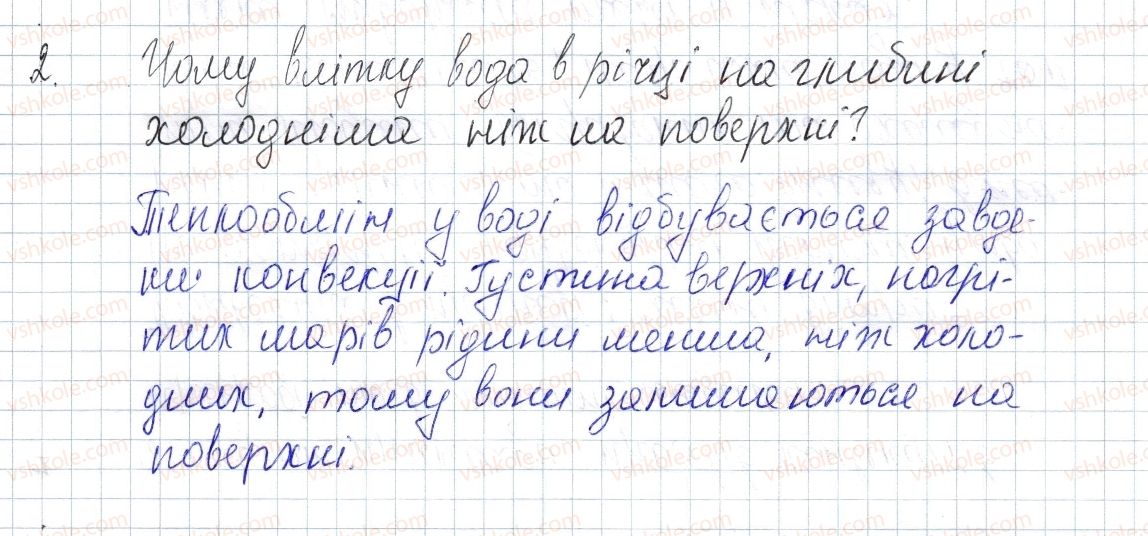 2. Чому влітку вода в річці на глибині
холодніша ніж на поверхні?
Теплообмін у воді відбувається завдя-
ки конвекції. Густина верхніх, нагрі-
тих шарів рідини менша, ніж холо-
дних, тому вони залишаються на
поверхні.